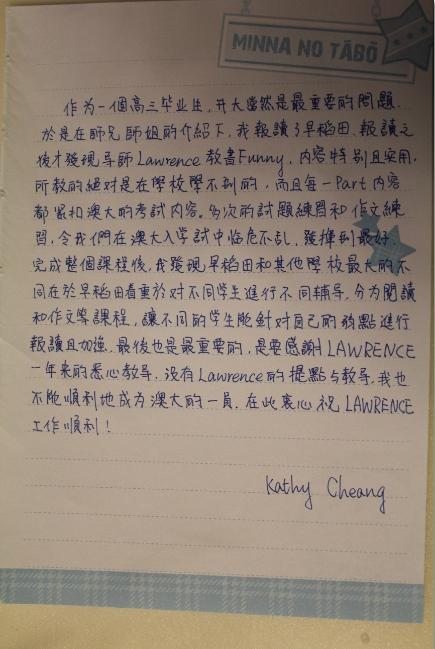 MINNA NO TĀBŌ
作為一個高三毕业生，升大當然是最重要的問題，
於是在師兄師姐的介紹下，我報讀了早稻田，報讀之
後才發現导師Lawrence教書Funny，内容特别且实用，
所教的絕对是在學校學不到的，而且每一Part内容
都緊扣澳大的考試内容。多次的試題練習和作文練
習，令我們在澳大入學試中臨危不乱，發揮到最好。
完成整個課程後，我發現早稻田和其他學校最大的不
同在於早稻田着重於对不同學生進行不同辅导，分为閱讀
和作文等課程，讓不同的学生能針对自己的弱點進行
報讀且加強。最後也是最重要的，是要感謝LAWRENCE
一年来的悉心教导，没有Lawrence的提點与教导，我也
不能順利地成为澳大的一員，在此衷心祝LAWRENCE
工作順利！
Kathy Cheang